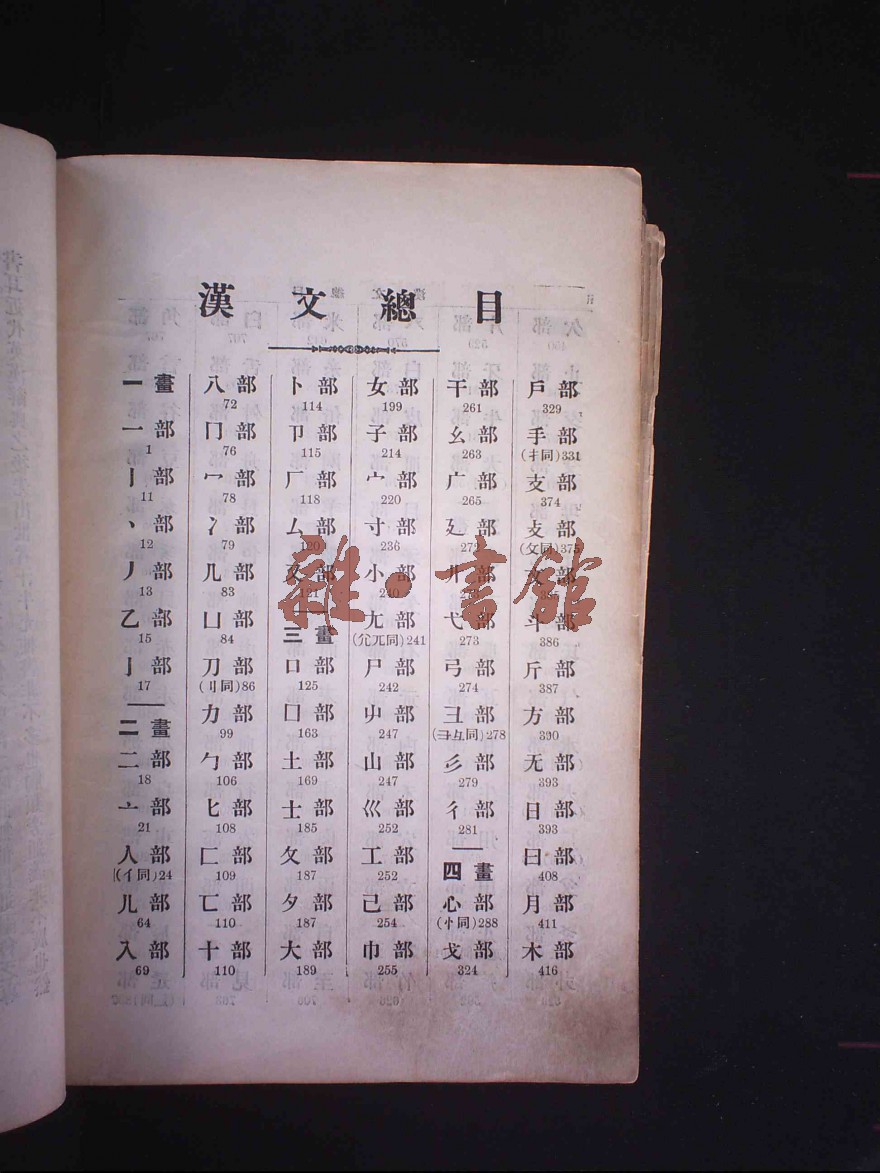 漢文總目
一畫
一部
1
丨部
11
丶部
12
丿部
13
乙部
15
亅部
17
二畫
二部
18
亠部
21
人部
(亻同)24
儿部
64
入部
69
八部
72
冂部
76
冖部
78
冫部
79
几部
83
凵部
84
刀部
(刂同)86
力部
99
勹部
106
匕部
108
匚部
109
匸部
110
十部
110
卜部
114
卩部
115
厂部
118
厶部
120
又部
121
三畫
口部
125
囗部
163
土部
169
士部
185
夂部
187
夕部
187
大部
189
女部
199
子部
214
宀部
220
寸部
236
小部
240
尢部
(尣兀同)241
尸部
242
屮部
247
山部
247
巛部
252
工部
252
己部
254
巾部
255
干部
261
幺部
263
广部
265
廴部
廾部
弋部
273
弓部
274
彐部
(彐彑同)278
彡部
279
彳部
281
四畫
心部
(忄同)288
戈部
324
戶部
329
手部
(扌同)331
支部
374
攴部
(攵同)375
文部
斗部
386
斤部
387
方部
390
无部
393
日部
393
曰部
408
月部
411
木部
416
雜·書館